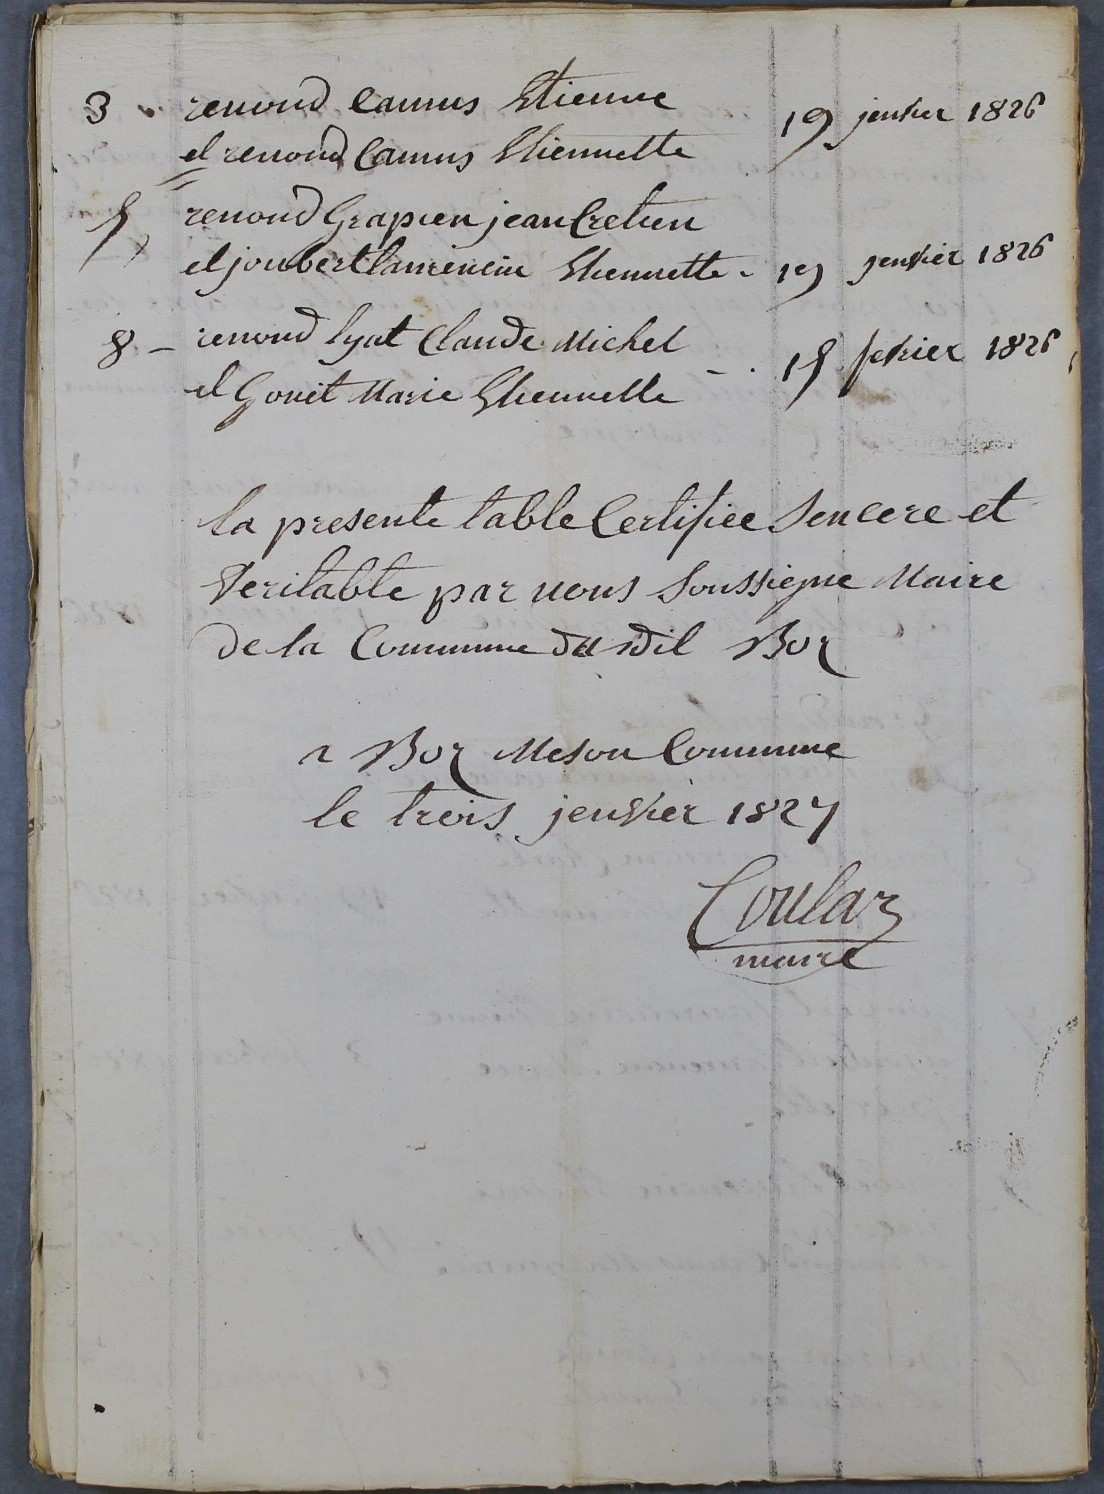 3 renond Camus Etienne
et renond Camus Etiennette 19 jenvier 1826
5 renond Grapien jean Cretien
et joubert Etiennette - 19 jenvier 1826
8 - renond lyat Claude Michel
et Gonet Marie Etiennette - . 15 fevrier 1826
la presente table Certifiee Sencere et
Veritable par nous Soussigne Maire
de la Commune dudit Boz
a Boz Meson Commune
le trois jenvier 1827
Coulas
maire